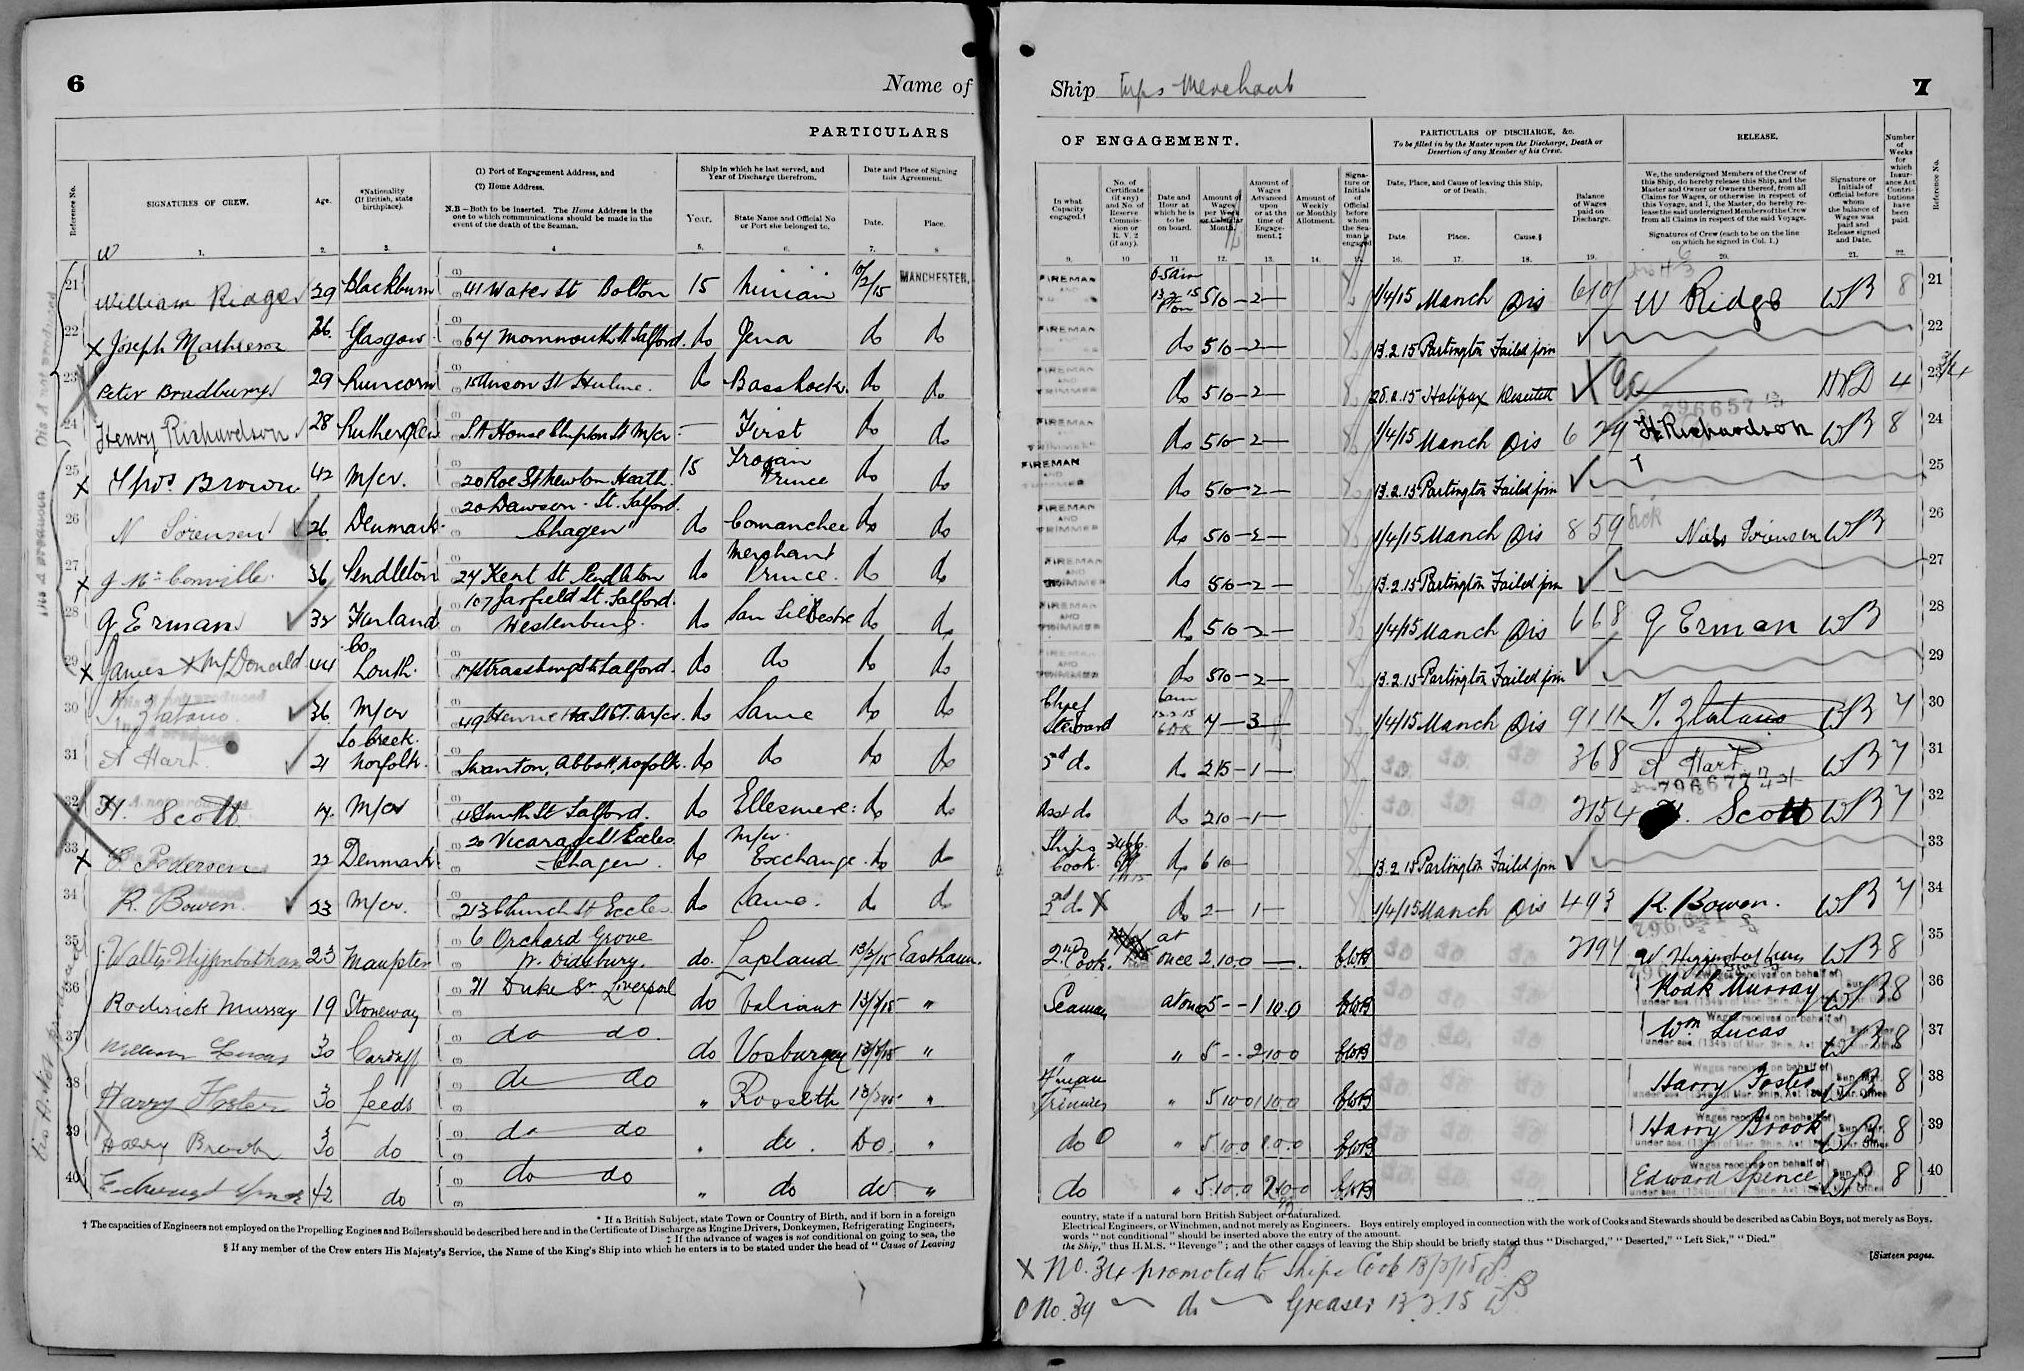 6
Name of
PARTICULARS
Reference No.
SIGNATURES OF CREW.
Age.
*Nationality
(If British, state
birthplace).
(1) Port of Engagement Address, and
(2) Home Address.
N.B—Both to be inserted. The Home Address is the
one to which communications should be made in the
event of the death of the Seaman.
Ship in which he last served, and
Year of Discharge therefrom.
Year.
State Name and Official No
or Port she belonged to.
Date and Place of Signing
this Agreement.
Date.
Place.
1. 2. 3. 4 5. 6. 7. 8
21 William Ridge 29 Blackburn 41 Water St Bolton 15 Ninian 10/2/15 MANCHESTER.
22 X Joseph Mathieson 26 Glasgow 64 Monmouth St Salford. do Jena do do
23 Peter Bradbury 29 Runcorn 15 Anson St Hulme. do Bass Rock. do do
24 Henry Richardson 28 Rutherglen S.A House Chepton St M/cr — First do do
25 X Thos Brown 42 M/cr. 20 Roe St Newton Heath. 15 Trojan Prince do do
26 N Sorensen 26 Denmark 20 Dawson St. Salford. Chagen do Comanchee do do
27 X J McConville 36 Pendleton 27 Kent St Pendleton do Merchant Prince. do do
28 G Erman 32 Finland 107 Garfield St. Salford. Westenburg. do San Silvestre do do
29 X James X McDonald 44 Co Louth. 17 Strassburg St Salford. do do do do
30 T. Zlatano 36 M/cr 49 Henrietta St C.T. M/cr. do Same do do
31 A Hart 21 Norfolk. Swanton, Abbott, Norfolk. do do do do
32 H. Scott 17. M/cr 4 Smith St Salford. do Ellesmere: do do
33 X P. Pedersen 22 Denmark 20 Vicarage St Eccles Chagen. do M/cr. Exchange. do do
34 R. Bowen. 23 M/cr. 213 Church St Eccles do Same. do do
35 Walter Higginbotham 23 6 Orchard Grove W. Didsbury. do. Lapland 13/2/15 Eastham.
36 Roderick Murray 19 Stoneway 21 Duke St Liverpool do Valiant 13/2/15 "
37 William Lucas 30 Cardiff do do. do 13/2/15 "
38 Harry Foster 30 Leeds do do " Rosseth "
39 Harry Brook 30 do do do " do. Do. "
40 Edward Spence 42 do do do " do do "
* If a British Subject, state Town or Country of Birth, and if born in a foreign
† The capacities of Engineers not employed on the Propelling Engines and Boilers should be described here and in the Certificate of Discharge as Engine Drivers, Donkeymen, Refrigerating Engineers,
‡ If the advance of wages is not conditional on going to sea, the
§ If any member of the Crew enters His Majesty's Service, the Name of the King's Ship into which he enters is to be stated under the head of "Cause of Leaving
Ship Merchant
7
OF ENGAGEMENT.
PARTICULARS OF DISCHARGE, &c.
To be filled in by the Master upon the Discharge, Death or
Desertion of any Member of his Crew.
RELEASE.
In what
Capacity
engaged.†
No. of
Certificate
(if any)
and No. of
Reserve
Commis-
sion or
R. V. 2
(if any).
Date and
Hour at
which he is
to be
on board.
Amount of
Wages
per Week
or Calendar
Month.
Amount of
Wages
Advanced
upon
or at the
time of
Engage-
ment.‡
Amount of
Weekly
or Monthly
Allotment.
Signa-
ture or
Initials
of
Official
before
whom
the Sea-
man is
engaged
Date, Place, and Cause of leaving this Ship,
or of Death.
Date.
Place.
Cause.§
Balance
of Wages
paid on
Discharge.
We, the undersigned Members of the Crew of
this Ship, do hereby release this Ship, and the
Master and Owner or Owners thereof, from all
Claims for Wages, or otherwise in respect of
this Voyage, and I, the Master, do hereby re-
lease the said undersigned Members of the Crew
from all Claims in respect of the said Voyage.
Signatures of Crew (each to be on the line
on which he signed in Col. 1.)
Signature or
Initials of
Official before
whom the
balance of
Wages was
paid and
Release signed
and Date.
Number
of
Weeks
for
which
Insur-
ance Act
Contri-
butions
have
been
paid.
Reference No.
9. 10 11 12. 13. 14. 15. 16. 17. 18. 19. 20. 21. 22.
FIREMAN 510 — 2 — 1/4/15 Manch Dis W Ridge WB 8 21
FIREMAN do 510 — 2 — 13.2.15 Partington Failed join 22
FIREMAN AND TRIMMER do 510 — 2 — 28.2.15 Halifax Deserted 4 23
FIREMAN do 510 — 2 — 1/4/15 Manch Dis 796657 H Richardson WB 8 24
FIREMAN do 510 — 2 — 13.2.15 Partington Failed join 25
FIREMAN AND TRIMMER do 510 — 2 — 1/4/15 Manch Dis 8 59 Niels Sorensen WB 26
FIREMAN AND TRIMMER do 510 — 2 — 13.2.15 Partington Failed join 27
FIREMAN AND TRIMMER do 510 — 2 — 1/4/15 Manch Dis 6 6 8 G Erman WB 28
FIREMAN AND TRIMMER do 510 — 2 — 13.2.15 Partington Failed join 29
Chief Steward 7 — 3 — 1/4/15 Manch Dis 9 11 11 T. Zlatano WB 7 30
2nd do. do 215 — 1 — do. do. do. 3 6 8 A Hart WB 7 31
Asst do do 210 — 1 — do. do. do. 2 15 4 H. Scott WB 7 32
Ships Cook. do 6 10 — 13.2.15 Partington Failed join 33
2nd do X do 2 — 1 — 1/4/15 Manch Dis 4 9 3 R. Bowen. WB 7 34
2nd Cook. at once 2.10.0 —. do. do. do. W Higginbotham WB 8 35
Seaman at once 5 - - 1 10.0 do. do. do. Rodk Murray WB 8 36
" " 5 - - 2 10 0 do. do. do. Wm Lucas WB 8 37
Fireman Trimmer " 5 10 0 1 10 0 do. do. do. Harry Foster WB 8 38
do O " 5.10.0 do. do. do. Harry Brook WB 8 39
do " 5.10.0 do. do. do. Edward Spence WB 8 40
Wages received on behalf of
country, state if a natural born British Subject or naturalized.
Electrical Engineers, or Winchmen, and not merely as Engineers. Boys entirely employed in connection with the work of Cooks and Stewards should be described as Cabin Boys, not merely as Boys.
words "not conditional" should be inserted above the entry of the amount.
the Ship," thus H.M.S. "Revenge"; and the other causes of leaving the Ship should be briefly stated thus "Discharged," "Deserted," "Left Sick," "Died."
[Sixteen pages.
X No. 34 promoted to Ships Cook 13/2/15 WB
O No. 39 — do — Greaser 13.2.15 WB